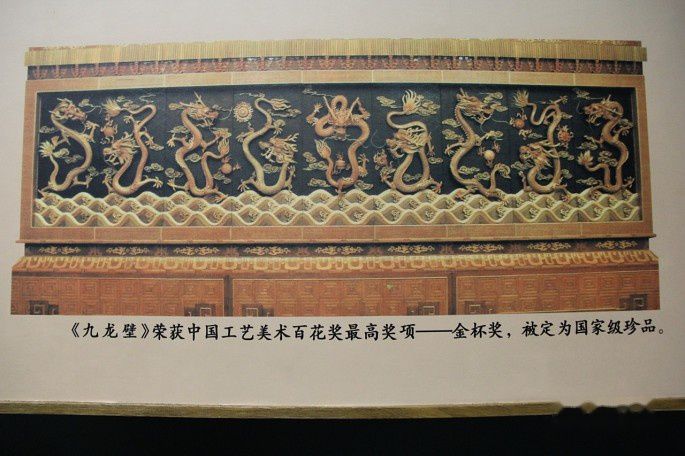 《九龙壁》荣获中国工艺美术百花奖最高奖项——金杯奖，被定为国家级珍品。